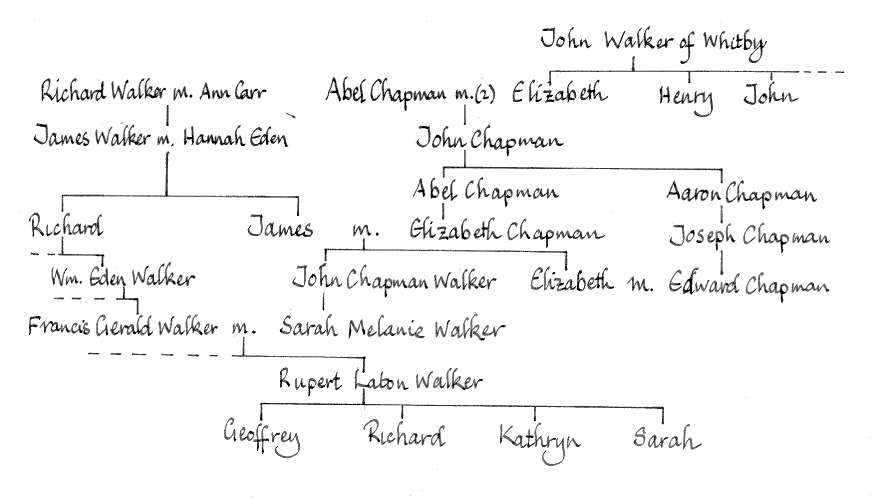 John Walker of Whitby
Richard Walker m. Ann Carr Abel Chapman m.(2) Elizabeth Henry John
James Walker m. Hannah Eden John Chapman
Abel Chapman Aaron Chapman
Richard James m. Elizabeth Chapman Joseph Chapman
Wm. Eden Walker John Chapman Walker Elizabeth m. Edward Chapman
Francis Gerald Walker m. Sarah Melanie Walker
Rupert Laton Walker
Geoffrey Richard Kathryn Sarah